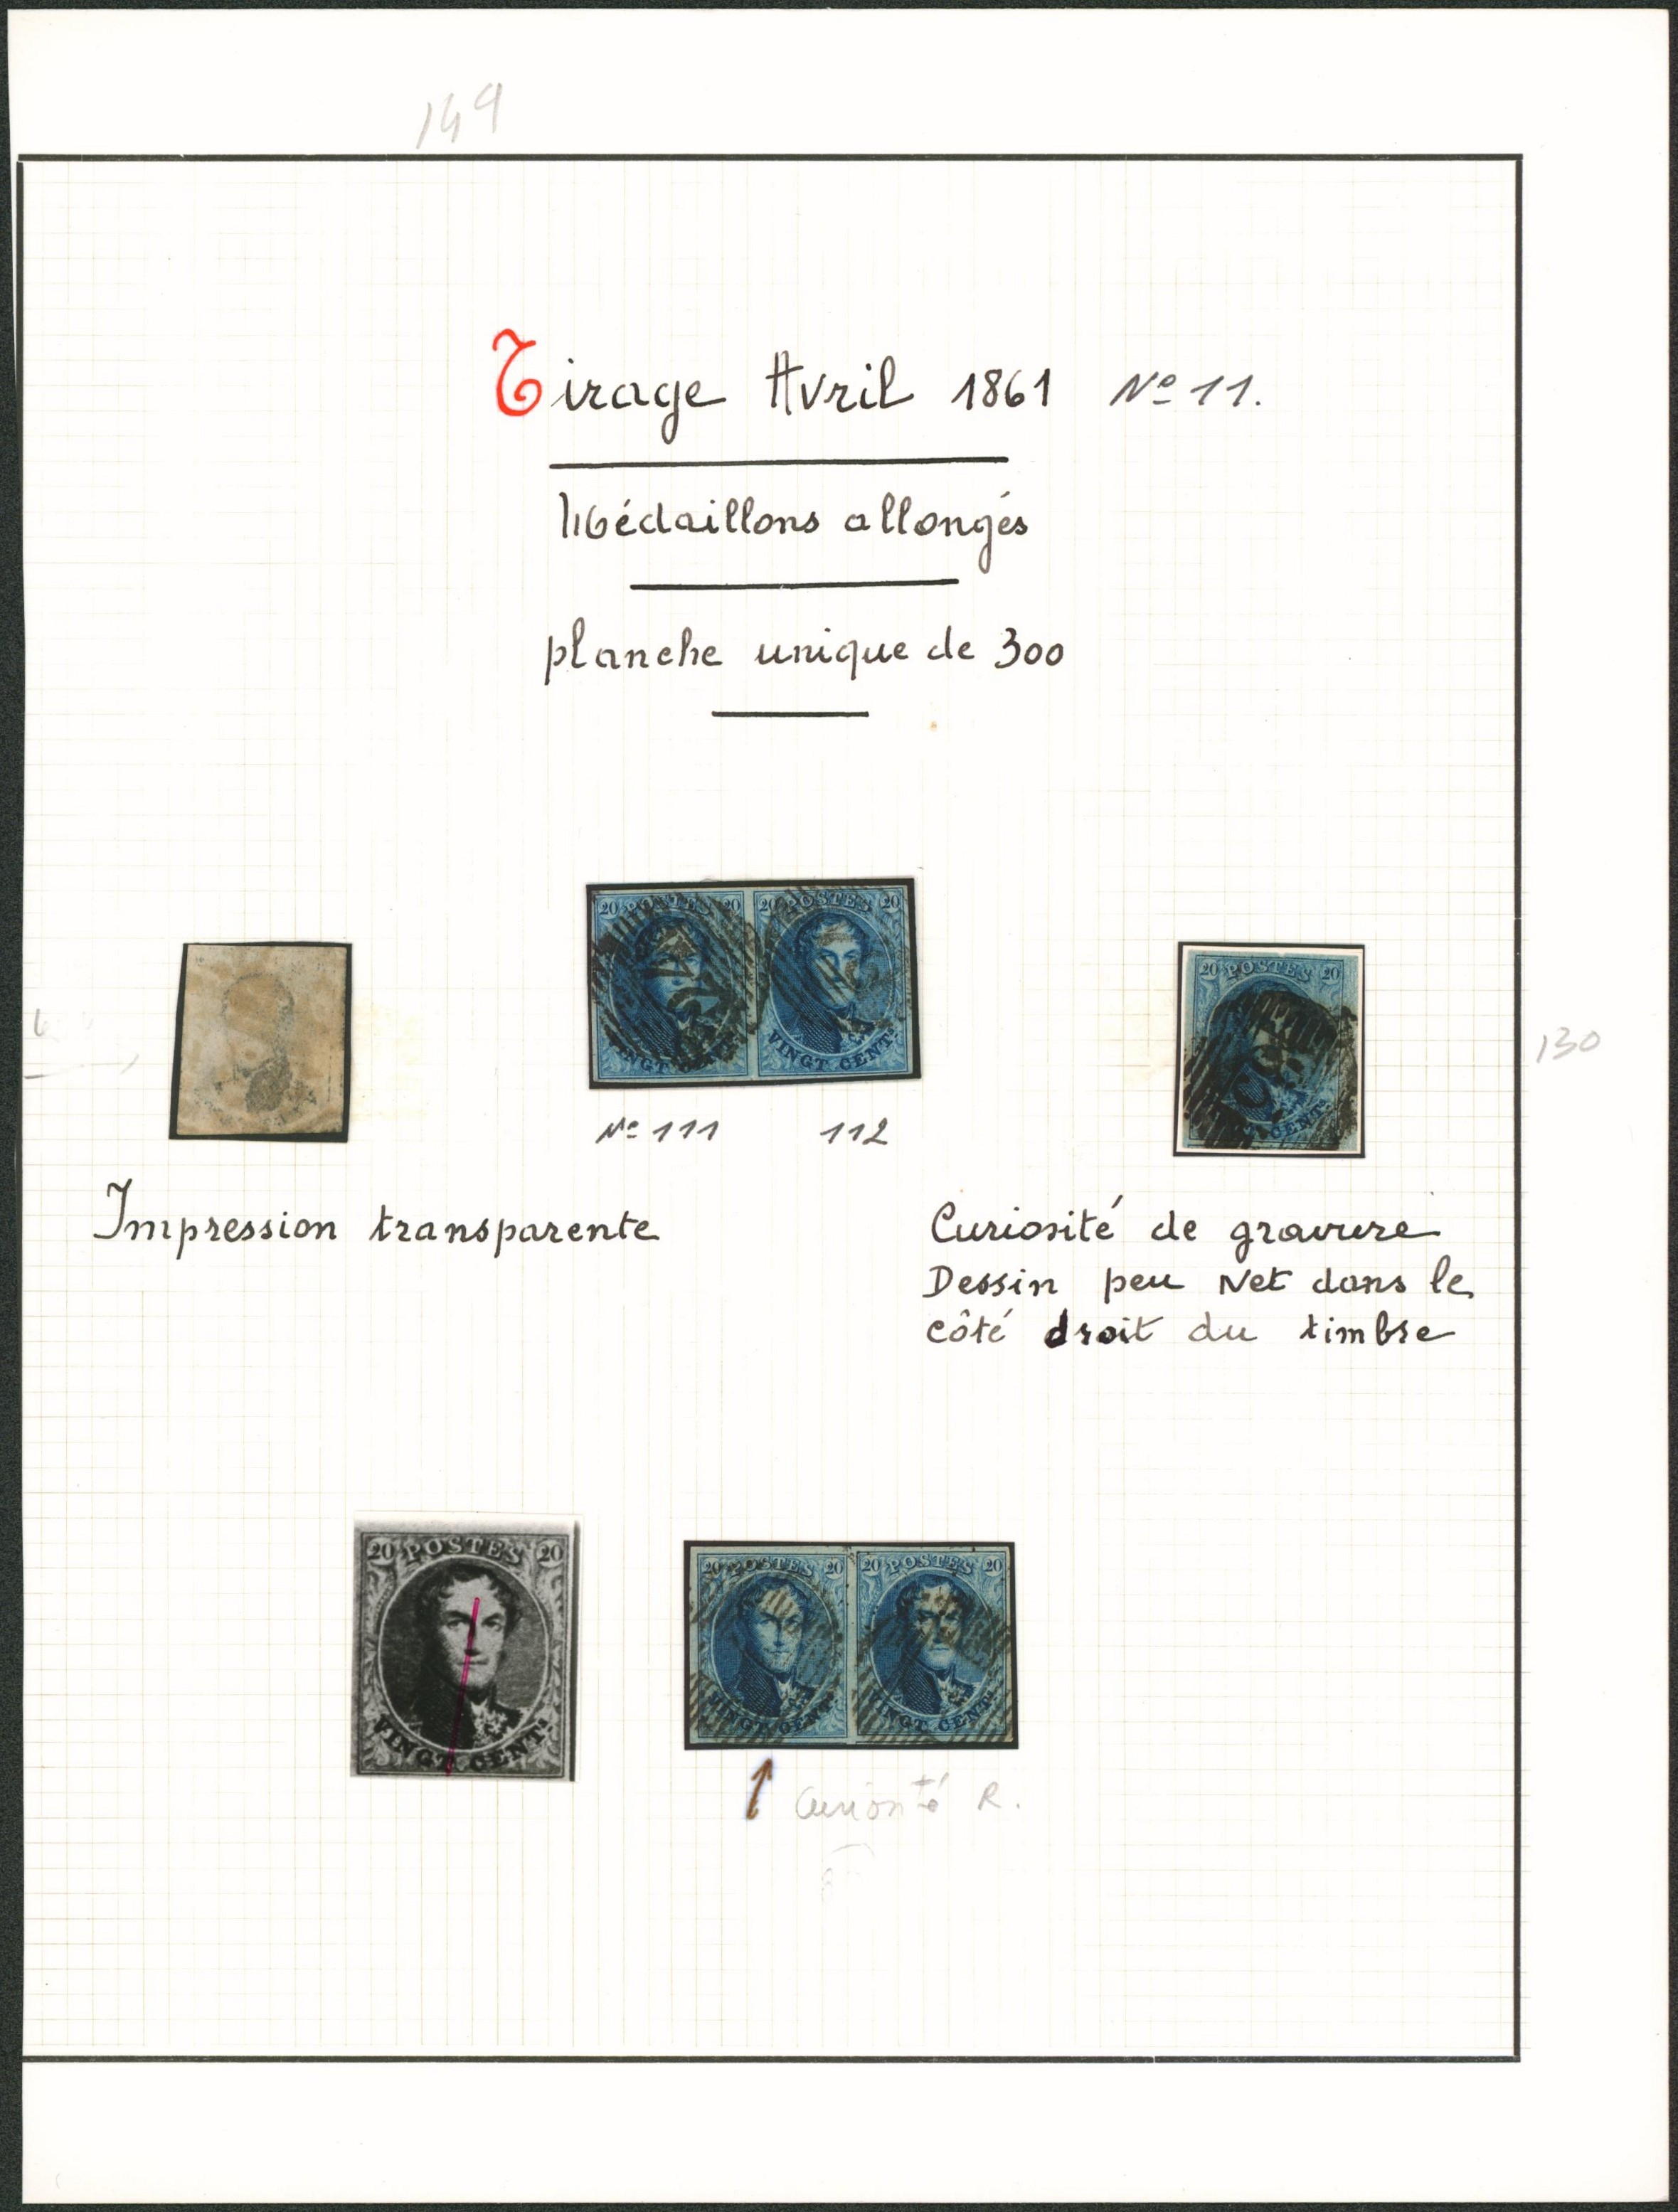 149
Tirage Avril 1861 No 11.
Médaillons allongés
planche unique de 300
20 POSTES 20 20 POSTES 20
VINGT CENTS VINGT CENTS
No 111 112
20 POSTES 20
CENTS
130
Impression transparente
Curiosité de gravure
Dessin peu Net dans le
côté droit du timbre
20 POSTES 20
VINGT CENTS
20 POSTES 20 20 POSTES 20
VINGT CENTS VINGT CENTS
Curiosité R.